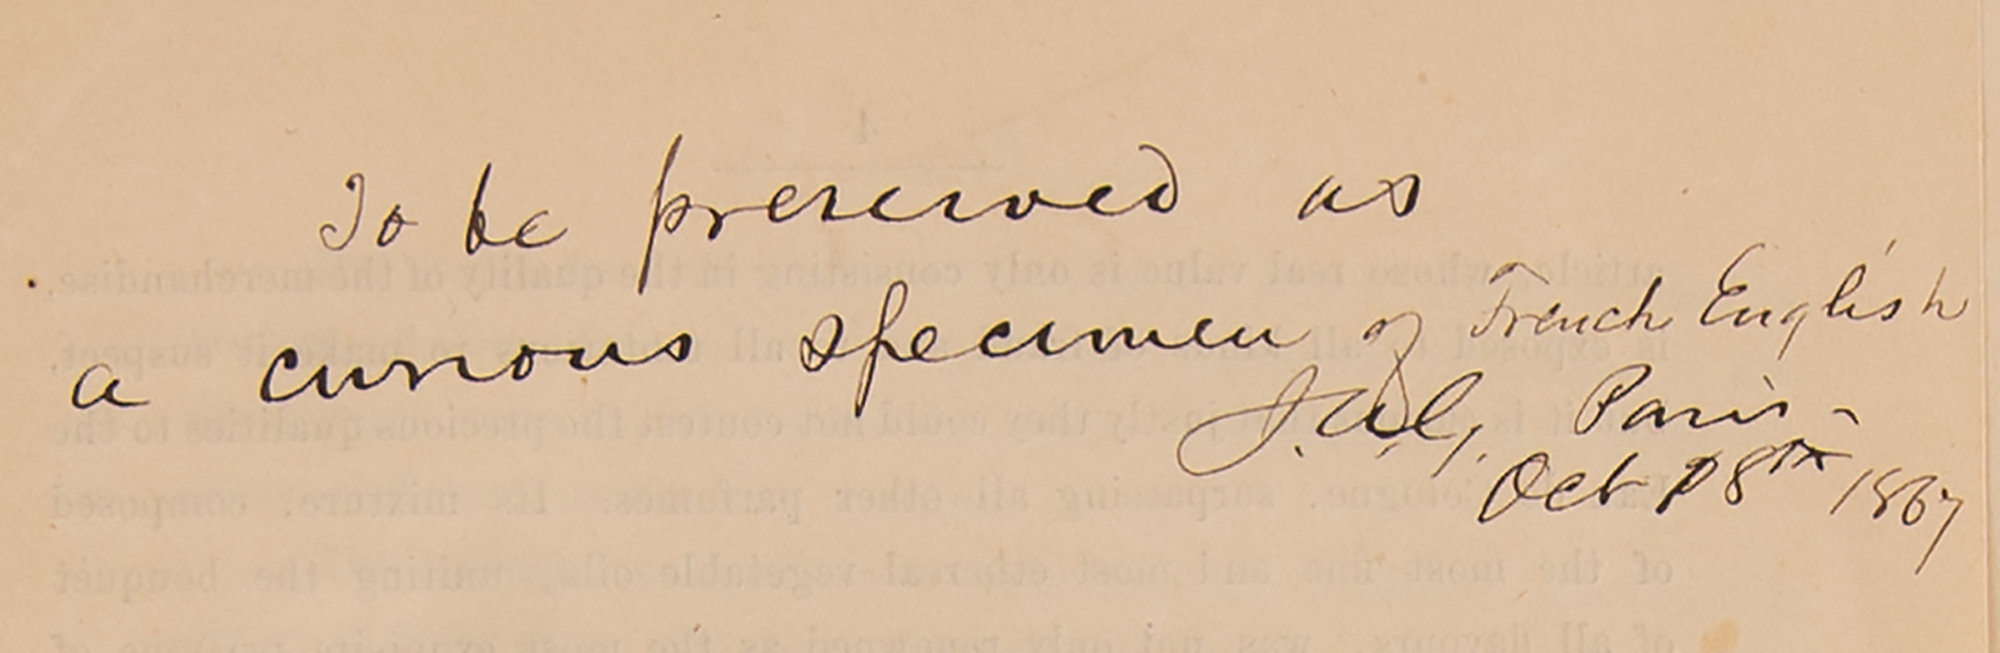 4
To be preserved as
article, whose real value is only consisting in the quality of the merchandise,
a curious specimen of French English
is exposed to all kinds of all to make it suspect,
J.A.G. Paris -
it is justly they could not contest the precious qualities to the
Oct 18th 1867
Cologne, surpassing all other parfumes. Its mixture, composed
of the most fine and most ethereal vegetable oils, uniting the bouquet
of all flavours, was not only renowned as the most exquisite parfume of